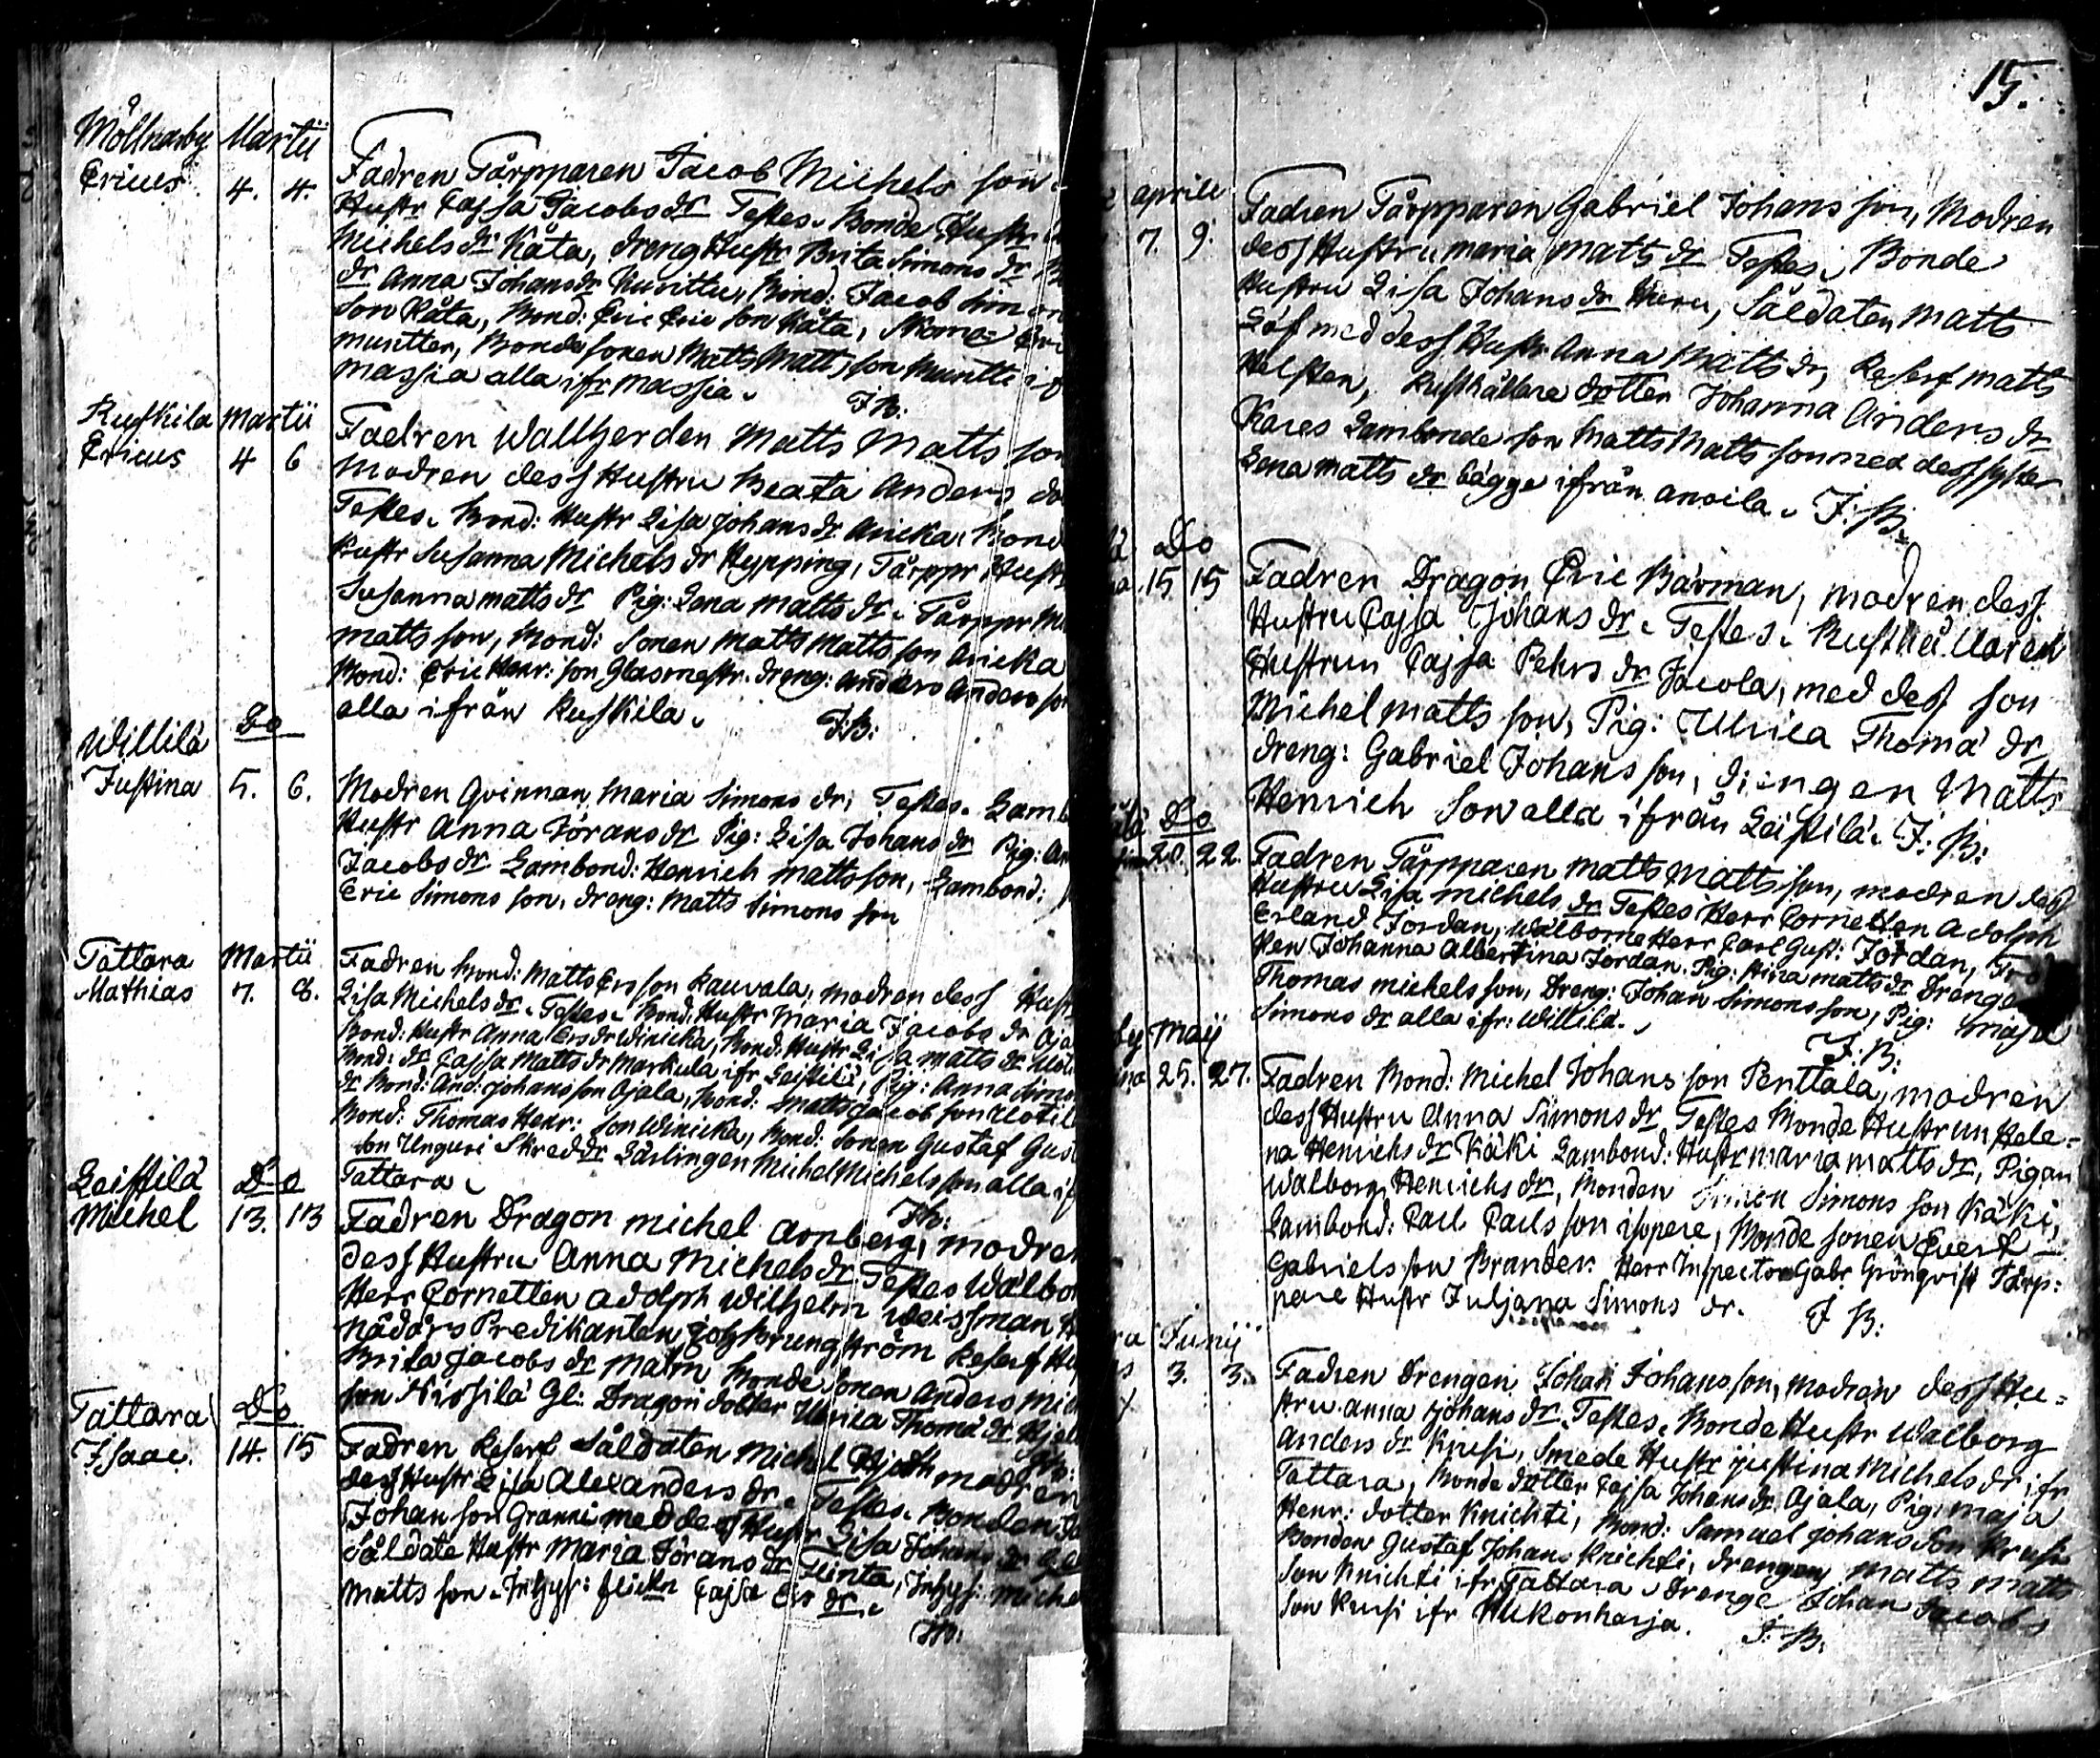 Måltnarby Martii
Ericus 4. 4. Fadren Tårpparen Jacob Michels son
Hustr Cajsa Jacobs dr Testes. Bonde Hustr
Michels dr Kåta, dreng Hustr Brita Simons dr
dr Anna Johans dr Bond: Jacob Simon
son Kåta, Bond: Eric Eric son Kåta,
Bonde sonen Matts Matts son
Massia alla ifr Massia.
J.B.
Ruskila Martii
Ericus 4 6 Fadren Wallherden Matts Matts son
Modren dess Hustru Beata Anders
Testes. Bond: Hustr Lisa Johans dr Bond
Hustr Susanna Michels dr Hypping, Tårppr Hustr
Susanna Matts dr Pig: Lena Matts dr. Tårppr
Matts son, Bond: Sonen Matts Matts son
Bond: Eric Henr: son Glasmestr. dreng: Anders Anders son
alla ifrån Ruskila.
J:B:
Willilä Do
Justina 5. 6. Modren Qvinnan Maria Simons dr, Testes. Lamb
Hustr Anna Jörans dr Pig: Lisa Johans dr Pig:
Jacobs dr Lambond: Henrich Matts son, Lambond:
Eric Simons son, dreng: Matts Simons son
Tattara Martii
Mathias 7. 8. Fadren Bond: Matts Ers son Kauvala, modren dess Hustr
Lisa Michels dr. Testes. Bond: Hustr Maria Jacobs dr
Bond: Hustr Anna Ers dr Winicka, Bond: Hustr Lisa Matts dr
Bond: dr Cajsa Matts dr Markula ifr Leistilä, Pig: Anna
dr Bond: And: Johans son Ajala, Bond: Matts Jacob son
Bond: Thomas Henr: son Winicka, Bond: Sonen Gustaf
son Unguri Skreddr Lärlingen Michel Michels son alla
Tattara.
Leistilä Do
Michel 13. 13 Fadren Dragon Michel Arnberg, modren
dess Hustru Anna Michels dr Testes
Herr Cornetten Adolph Wilhelm Weissman
Nådårs Predikanten Joh: Reserf
Brita Jacobs dr Malm Bonde Sonen Anders
son Nissilä Gl: Dragon dotter Ulrica Thoma dr
Tattara Do
Isaac. 14. 15 Fadren Reserf Såldaten Michel modren
dess Hustr Lisa Alexanders dr. Testes. Bonden
Johan son Granni med dess Hustr Lisa Johans dr
Såldate Hustr Maria Jörans dr Flinta, Inhys:
Matts son. Inhys: flickn Cajsa Ers dr.
15.
Aprill
7. 9. Fadren Tårpparen Gabriel Johans son, Modren
dess Hustru Maria Matts dr Testes. Bonde
Hustru Lisa Johans dr Huru, Såldaten Matts
Löf med dess Hustr Anna Matts dr, Reserf Matts
Helsten, Rusthållare dotten Johanna Anders dr
Kares Lambonde son Matts Matts son med dess syster
Lena Matts dr bägge ifrån Anoila. J:B.
Do
15 15 Fadren Dragon Eric Bårman, modren dess
Hustru Cajsa Johans dr. Testes. Rusthållaren
Hustrun Cajsa Pehrs dr Jacola, med dess son
Michel Matts son, Pig: Ulrica Thoma dr
dreng: Gabriel Johans son, drengen Matts
Henrich Son alla ifrån Leistilä. J:B:
Do
20. 22. Fadren Tårpparen Matts Matts son, modren dess
Hustru Lisa Michels dr Testes Herr Cornetten Adolph
Erland Jordan, Wälborne Herr Carl Gust: Jordan,
ken Johanna Albertina Jordan. Pig: Stina Matts dr Drenge
Thomas Michels son, Dreng: Johan Simons son, Pig: Maja
Simons dr alla ifr: Willilä.
J:B:
by Maij
25. 27. Fadren Bond: Michel Johans son Penttala, modren
dess Hustru Anna Simons dr Testes Bonde Hustrun Hele-
na Henrichs dr Käki Lambond: Hustr Maria Matts dr, Pigan
Walborg Henrichs dr, Bonden Simon Simons son Käki,
Lambond: Carl Carls son isopere, Bonde sonen Evert
Gabriels son Brander. Herr Inspector Gabr Grönqvist Tårp:
pare Hustr Juljana Simons dr. J B:
Junij
3. 3. Fadren Drengen Johan Johans son, modren dess Hu=
stru Anna Johans dr. Testes. Bonde Hustr Walborg
Anders dr Krusi, Smede Hustr Justina Michels dr ifr
Tattara, Bonde dotter Cajsa Johans dr Ajala, Pig: Maja
Henr: dotter Knichti, Bond: Samuel Johans Son Krusi
Bonden Gustaf Johans Knichti, drengen Matts Matts
son Knichti ifr Tattara. drenge Johan Jacobs
son Krusi ifr Hukonharja. J: B: